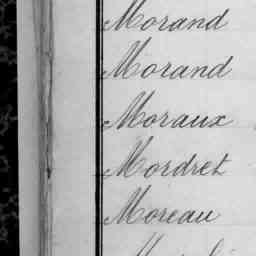 Morand
Morand
Moraux
Mordret
Moreau